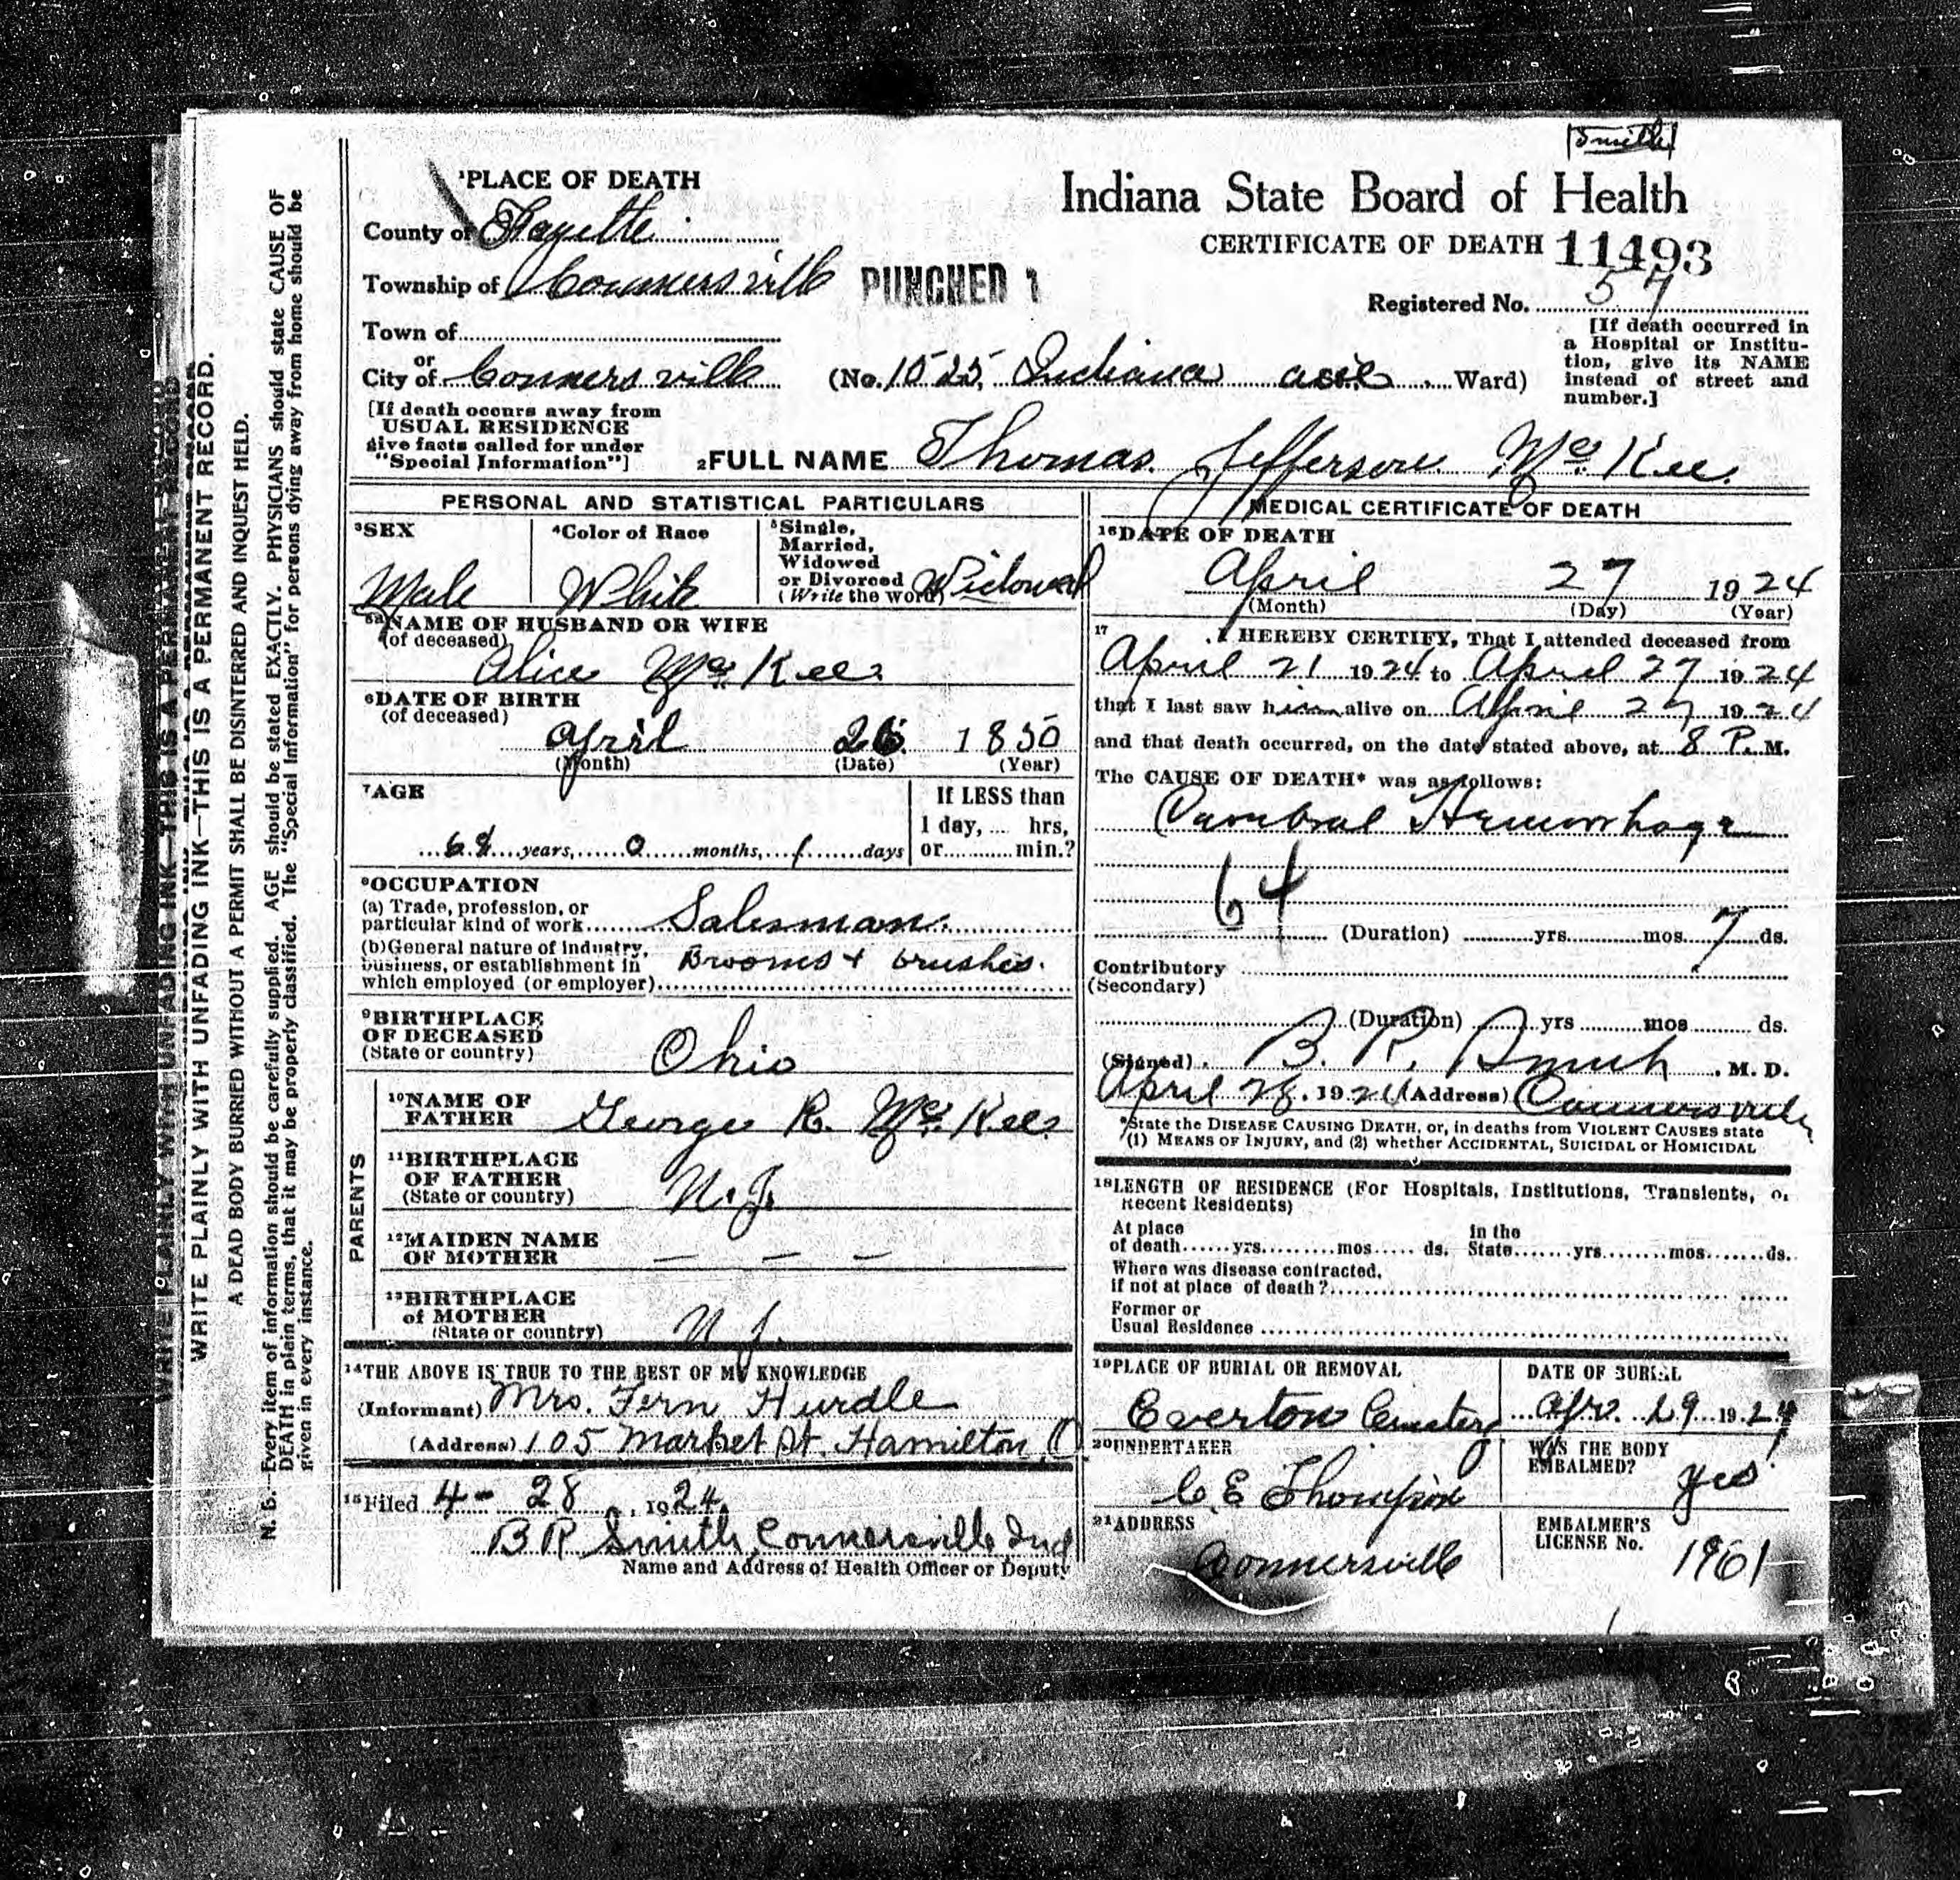 Smith
¹PLACE OF DEATH
Indiana State Board of Health
County of Fayette
CERTIFICATE OF DEATH 11493
Township of Connersville
PUNCHED 1
Registered No. 57
Town of
or
City of Connersville (No. 1525, Indiana ave Ward)
[If death occurred in
a Hospital or Institu-
tion, give its NAME
instead of street and
number.]
[If death occurs away from
USUAL RESIDENCE
give facts called for under
"Special Information"]
²FULL NAME Thomas Jefferson McKee.
PERSONAL AND STATISTICAL PARTICULARS
³SEX
Male
⁴Color of Race
White
⁵Single,
Married,
Widowed
or Divorced
(Write the word)
Widowed
⁵ᵃNAME OF HUSBAND OR WIFE
(of deceased)
Alice McKee
⁶DATE OF BIRTH
(of deceased)
April 26 1850
(Month) (Date) (Year)
⁷AGE
years, 0 months, 1 days
If LESS than
1 day, ... hrs,
or ... min.?
⁸OCCUPATION
(a) Trade, profession, or
particular kind of work Salesman
(b) General nature of industry,
business, or establishment in
which employed (or employer)
Brooms + brushes.
⁹BIRTHPLACE
OF DECEASED
(State or country)
Ohio
PARENTS
¹⁰NAME OF
FATHER
George R. McKee
¹¹BIRTHPLACE
OF FATHER
(State or country)
N.J.
¹²MAIDEN NAME
OF MOTHER
— — —
¹³BIRTHPLACE
of MOTHER
(State or country)
N J.
¹⁴THE ABOVE IS TRUE TO THE BEST OF MY KNOWLEDGE
(Informant) Mrs. Fern Hurdle
(Address) 105 Market St. Hamilton, O.
¹⁵Filed 4 - 28, 1924
B R Smith, Connersville Ind
Name and Address of Health Officer or Deputy
MEDICAL CERTIFICATE OF DEATH
¹⁶DATE OF DEATH
April 27 1924
(Month) (Day) (Year)
¹⁷ I HEREBY CERTIFY, That I attended deceased from
April 21 1924 to April 27 1924
that I last saw him alive on April 27 1924
and that death occurred, on the date stated above, at 8 P. M.
The CAUSE OF DEATH* was as follows:
Cerebral Hemorrhage
64
(Duration) yrs mos 7 ds.
Contributory
(Secondary)
(Duration) yrs mos ds.
(Signed) B. R. Smith, M. D.
April 28, 1924 (Address) Connersville
*State the DISEASE CAUSING DEATH, or, in deaths from VIOLENT CAUSES state
(1) MEANS OF INJURY, and (2) whether ACCIDENTAL, SUICIDAL or HOMICIDAL
¹⁸LENGTH OF RESIDENCE (For Hospitals, Institutions, Transients, or
Recent Residents)
At place
of death yrs mos ds.
In the
State yrs mos ds.
Where was disease contracted,
if not at place of death?
Former or
Usual Residence
¹⁹PLACE OF BURIAL OR REMOVAL
Everton Cemetery
DATE OF BURIAL
Apr. 29 1924
²⁰UNDERTAKER
C. E Thompson
WAS THE BODY
EMBALMED?
yes
²¹ADDRESS
Connersville
EMBALMER'S
LICENSE No.
1961
WRITE PLAINLY WITH UNFADING INK—THIS IS A PERMANENT RECORD
WRITE PLAINLY WITH UNFADING INK—THIS IS A PERMANENT RECORD.
A DEAD BODY BURRIED WITHOUT A PERMIT SHALL BE DISINTERRED AND INQUEST HELD.
N. B.—Every item of information should be carefully supplied. AGE should be stated EXACTLY. PHYSICIANS should state CAUSE OF
DEATH in plain terms, that it may be properly classified. The "Special Information" for persons dying away from home should be
given in every instance.